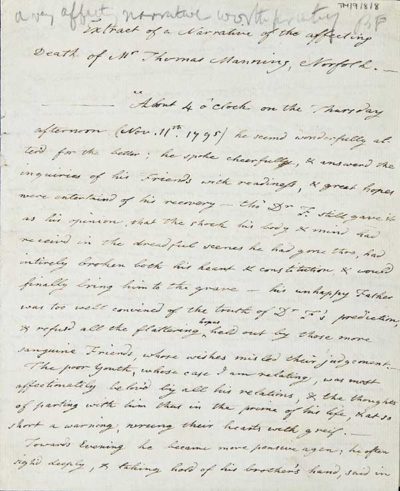 a very affect. narrative worth printing
TM/9/8/8
Extract of a Narrative of the affecting
Death of Mr Thomas Manning, Norfolk. —
"About 4 o'Clock on the Thursday
afternoon (Nov. 11th. 1795) he seem'd wonderfully al-
ter'd for the better; he spoke cheerfully, & answer'd the
inquiries of his Friends with readiness, & great hopes
were entertain'd of his recovery — tho' Dr F. still gave it
as his opinion, that the shock his body & mind had
receiv'd in the dreadful scenes he had gone thro, had
intirely broken both his heart & constitution & would
finally bring him to the grave — his unhappy Father
was too well convinced of the truth of Dr F's prediction,
& refus'd all the flattering hopes held out by those more
sanguine Friends, whose wishes misled their judgement. —
The poor Youth, whose case I am relating, was most
affectionately belov'd by all his relations, & the thoughts
of parting with him thus in the prime of his life, & at so
short a warning, wrung their hearts with greif. —
Towards Evening he became more pensive again; he often
sigh'd deeply, & taking hold of his brother's hand, said in